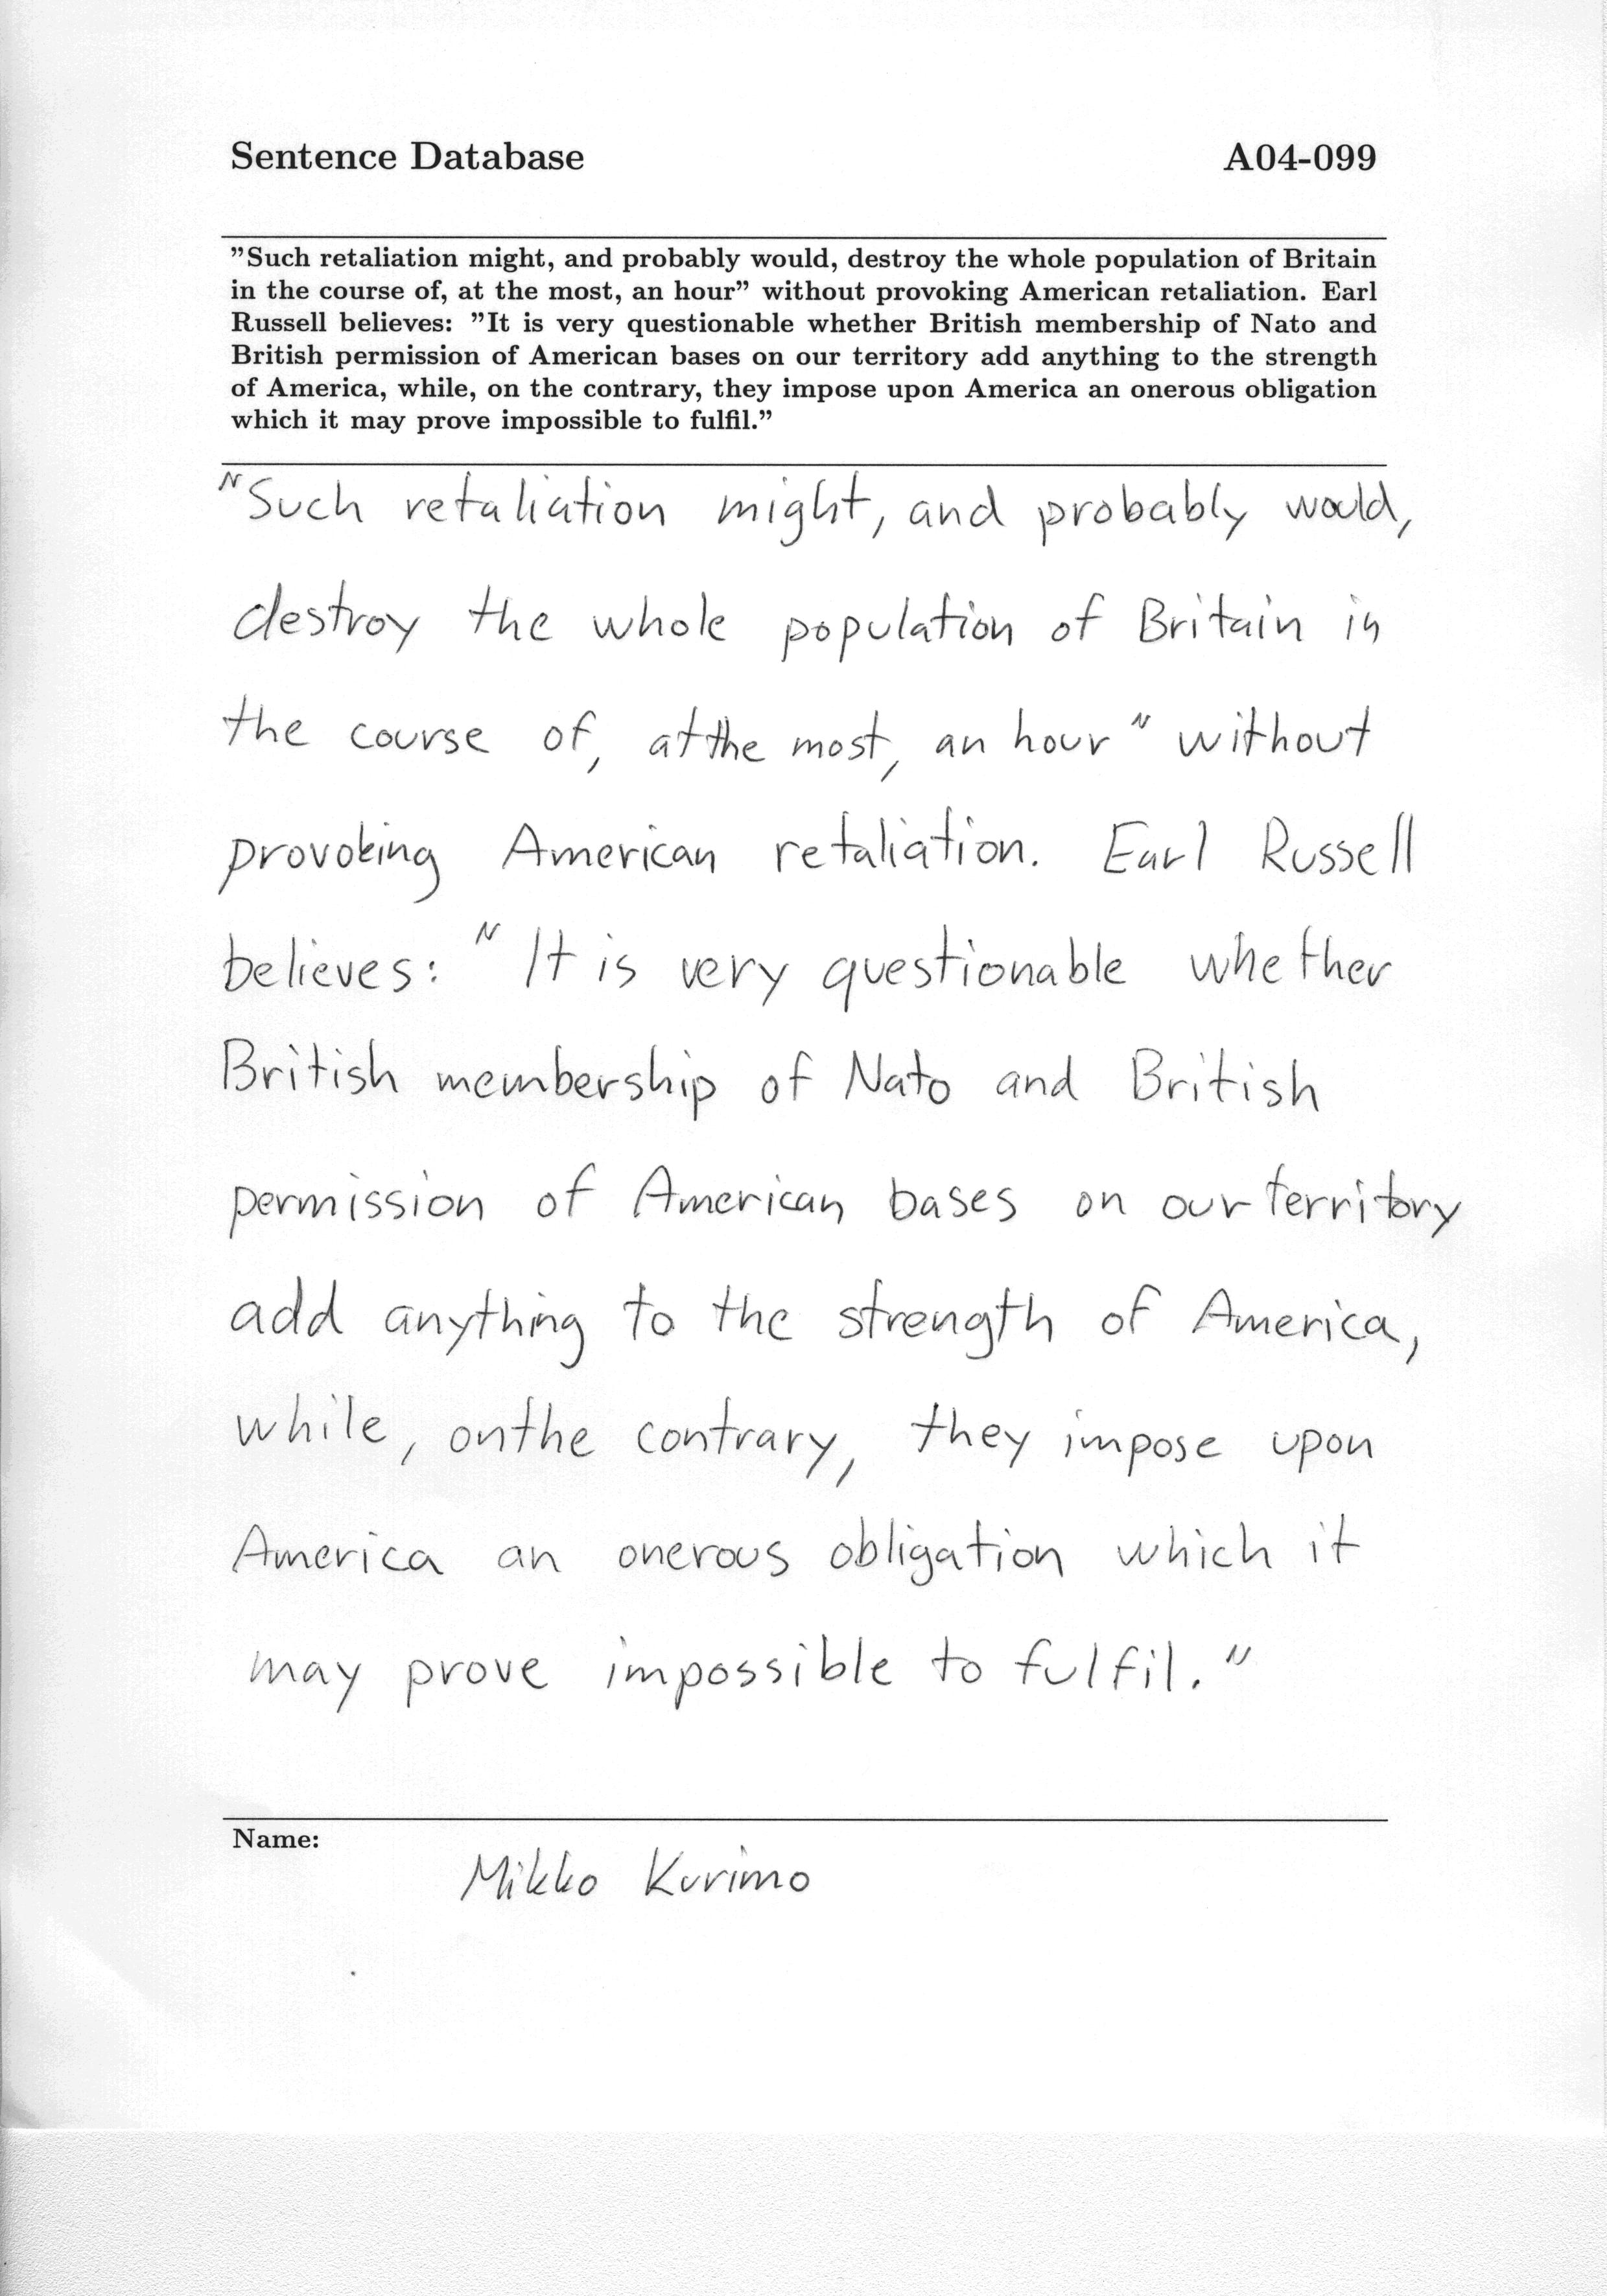 Sentence Database A04-099
"Such retaliation might, and probably would, destroy the whole population of Britain
in the course of, at the most, an hour" without provoking American retaliation. Earl
Russell believes: "It is very questionable whether British membership of Nato and
British permission of American bases on our territory add anything to the strength
of America, while, on the contrary, they impose upon America an onerous obligation
which it may prove impossible to fulfil."
"Such retaliation might, and probably would,
destroy the whole population of Britain in
the course of, at the most, an hour" without
provoking American retaliation. Earl Russell
believes: "It is very questionable whether
British membership of Nato and British
permission of American bases on our territory
add anything to the strength of America,
while, on the contrary, they impose upon
America an onerous obligation which it
may prove impossible to fulfil."
Name:
Mikko Kurimo